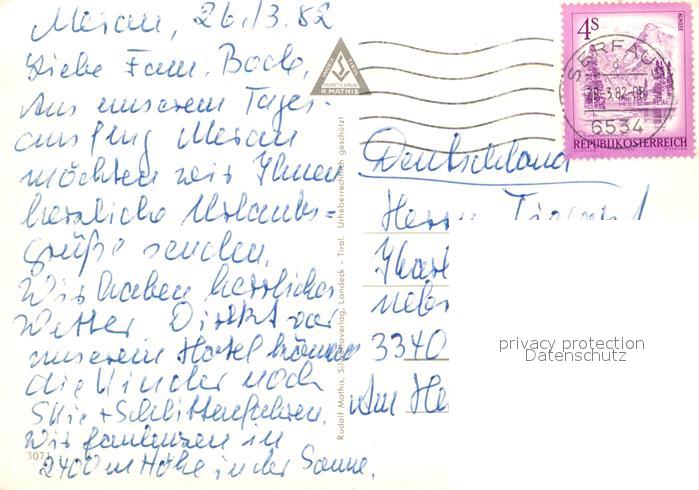 Meran, 26./3.82
Liebe Fam. Bode,
Aus unserem Tages-
ausflug Meran
möchten wir Ihnen
herzliche Urlaubs-
grüße senden.
Wir haben herrliches
Wetter Direkt vor
unserem Hotel können
die Kinder noch
Ski + Schlittenfahren.
Wir faulenzen in
2400 m Höhe in der Sonne.
307
R. MATHIS
Rudolf Mathis, Silvrettaverlag, Landeck - Tirol. Urheberrechtlich geschützt!
4S
ALMSEE
REPUBLIK ÖSTERREICH
SERFAUS
3.82
6534
Deutschland
Herrn
3340
privacy protection
Datenschutz